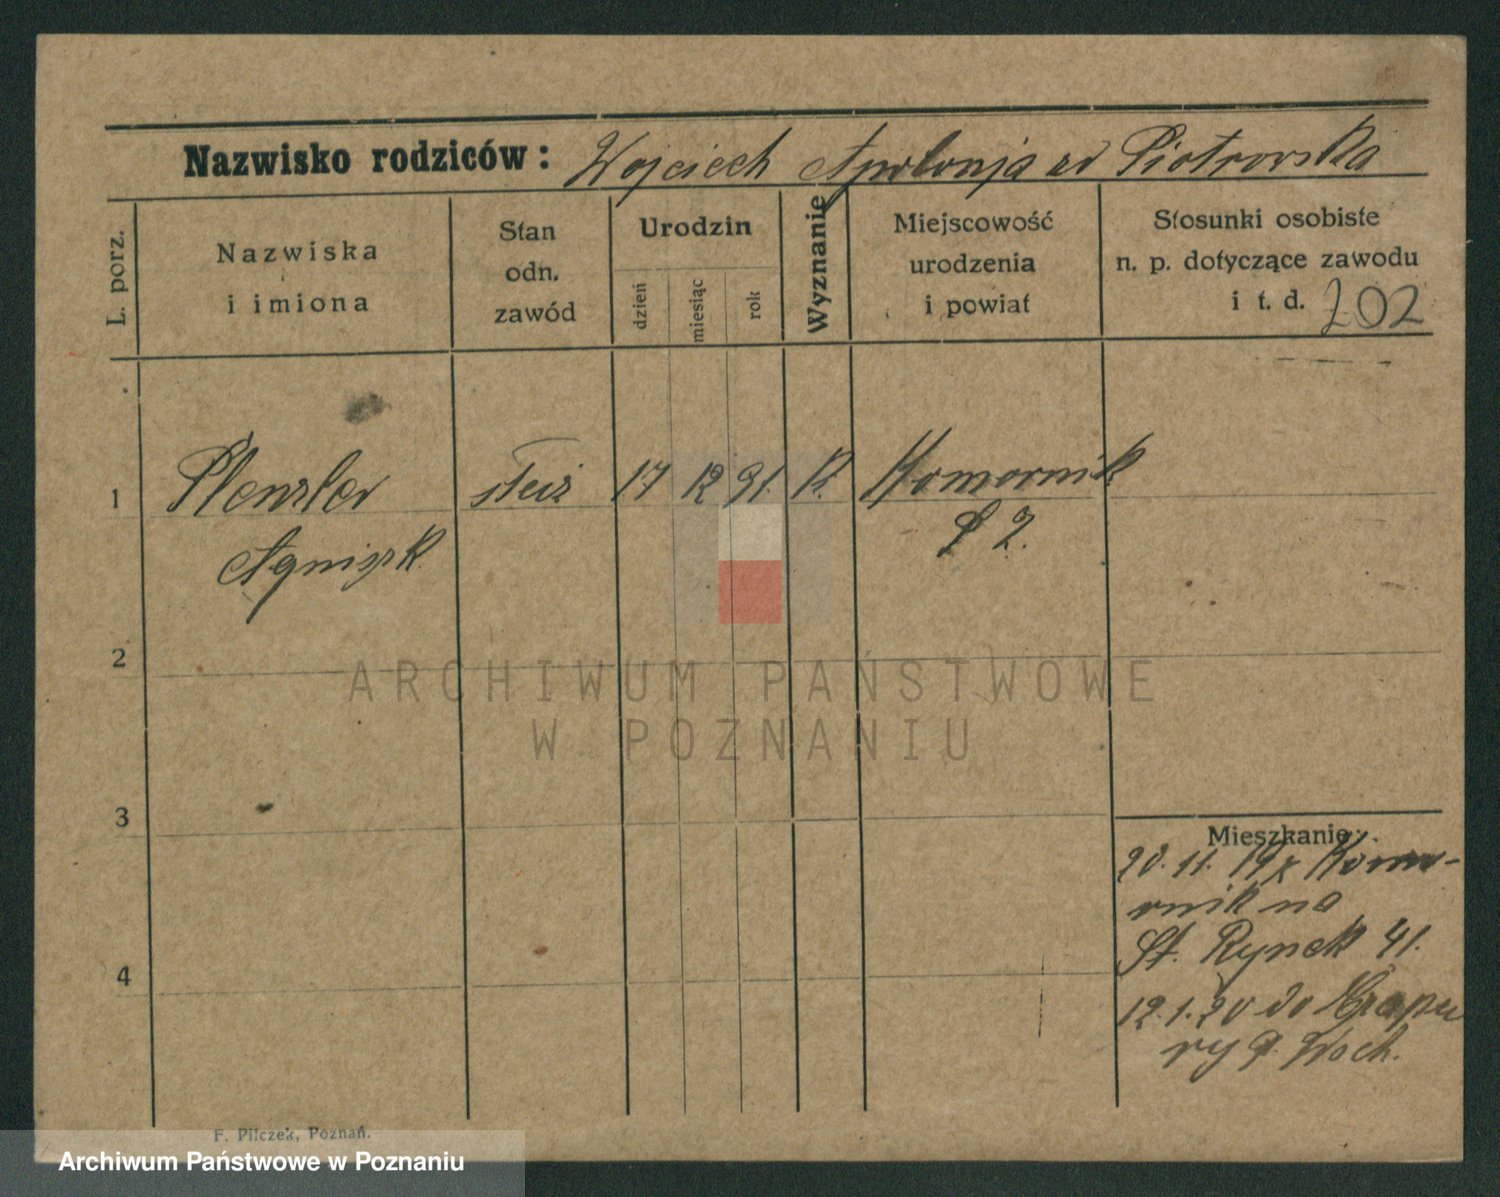 Nazwisko rodziców: Wojciech Apolonja ud Piotrowska
L. porz.
Nazwiska
i imiona
Stan
odn.
zawód
Urodzin
dzień
miesiąc
rok
Wyznanie
Miejscowość
urodzenia
i powiat
Stosunki osobiste
n. p. dotyczące zawodu
i t. d. 202
1
17 12 91. K. Komornik
Agniszk.
2
ARCHIWUM PAŃSTWOWE
W POZNANIU
3
Mieszkanie:
20. 11. 19 z Komor-
nik na
St. Rynek 41.
4
12. 1. 20 do
F. Pilczek, Poznań.
Archiwum Państwowe w Poznaniu